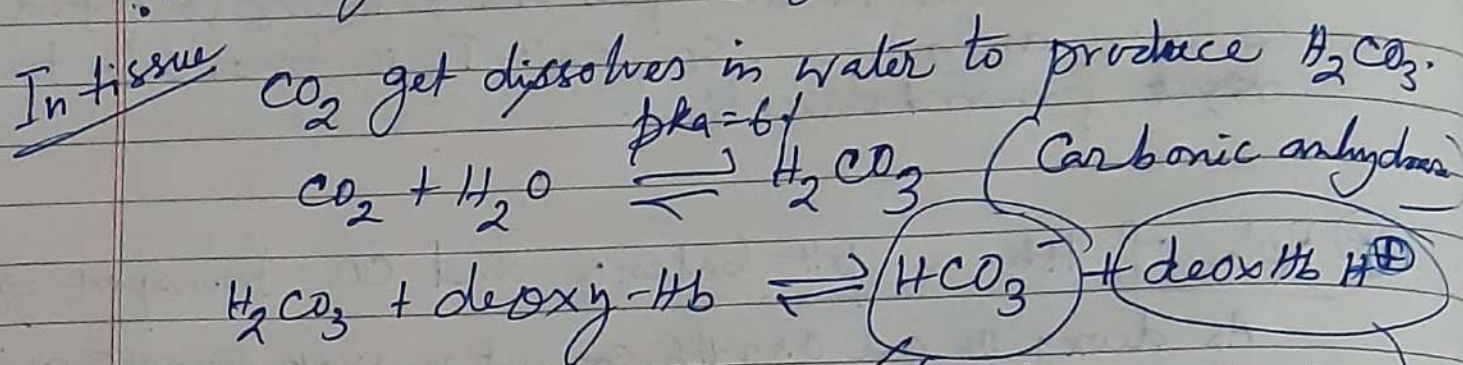 In tissue CO₂ get dissolves in water to produce H₂CO₃.
pka = 6.1
CO₂ + H₂O ⇌ H₂CO₃ (Carbonic
H₂CO₃ + deoxy-Hb ⇌ HCO₃⁻ + deoxHb H⊕